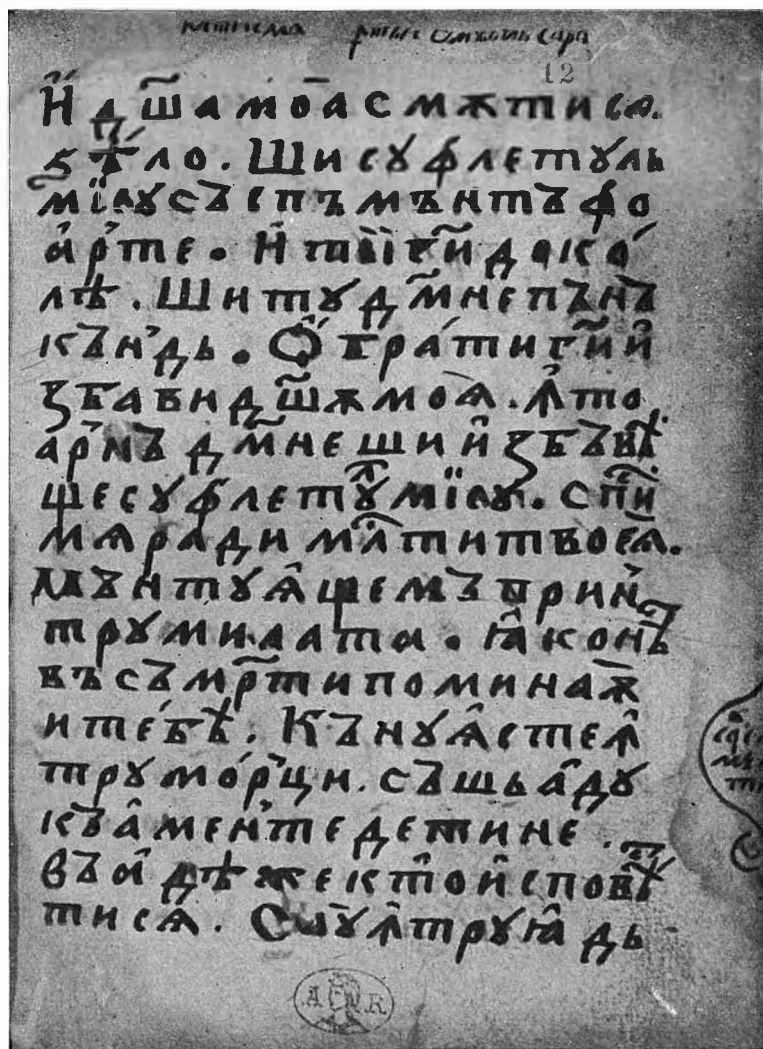 12
И҆ д҃ша моа смѫтисѧ
ѕѣло. Ши суфлетуль
мїеу съспъмънтъ фо
а́рте. И҆ ты г҃и доко́
лѣ. Ши ту д҃мне пънъ
кънⷣдь. Ѡ҆брати г҃и и҆
збави д҃шѫ моѧ. ꙟто
арнъ д҃мне ши и҆збъвѣ
ще суфлетуⷧ мїеу. сп҃си
мѧ ради млⷭти твоеѧ.
Мънтуѧ҆ще мъ прин
тру мила та. ꙗ҆ко нѣⷭ
въ съмр҃ти поминаѫ
и тебѣ. Къ ну ꙗ҆сте ꙟ
тру морци. съшь аду
къ а҆менте де тине.
въ а҆дѣ же кто и҆сповѣⷭ
тисѧ. Сау ꙟтру ꙗ҆дь
А К